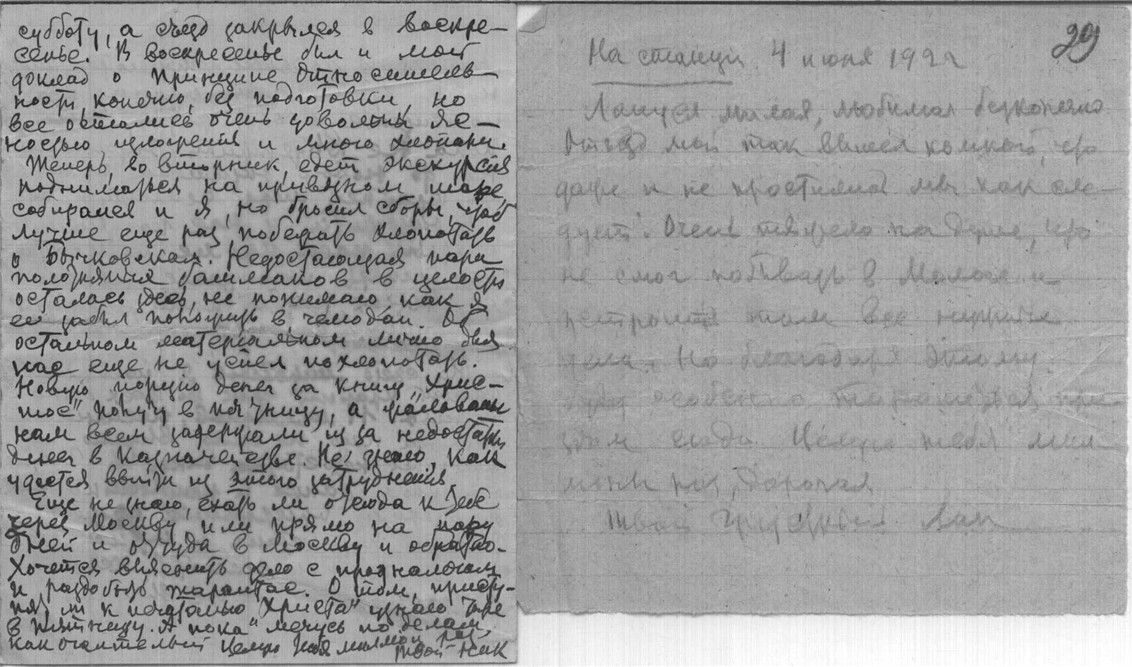 субботу, а съезд закрылся в воскре-
сенье. В воскресенье был и мой
доклад о Принципе Относитель-
ности, конечно, без подготовки, но
все остались очень довольны яс-
ностью изложения и много хлопали.
Теперь, во вторник, едет экскурсия
подниматься на привязном шаре
собирался и я, но бросил сборы, чтоб
лучше еще раз побегать хлопотать
о Бычковской. Недостающая пара
башмаков в целости
осталась здесь, не понимаю как я
ее забыл положить в чемодан. Об
остальном материальном лично для
нас еще не успел похлопотать.
Новую порцию денег за книгу „Хрис-
тос" получу в пятницу, а жалованье
нам всем задержали из за недостатка
денег в казначействе. Не знаю как
удастся выйти из этого затруднения.
Еще не знаю, ехать ли отсюда к тебе
через Москву или прямо на пару
дней и оттуда в Москву и обратно.
Хочется выяснить дело с продналогом
и раздобыть. О том, присту-
пят ли к печатанью „Христа" узнаю тоже
в пятницу. А пока мечусь по делам,
как Целую тебя мил моя
твой Как
29
На станции. 4 июня 1922
милая, любимая бесконечно
Отъезд мой так вышел, что
даже и не простились мы как сле-
дует. Очень тяжело на душе, что
не смог побывать в Мологе и
устроить там все нужные
дела. Но благодаря этому
особенно
сюда Целую тебя мил
раз, дорогая
Твой грустный